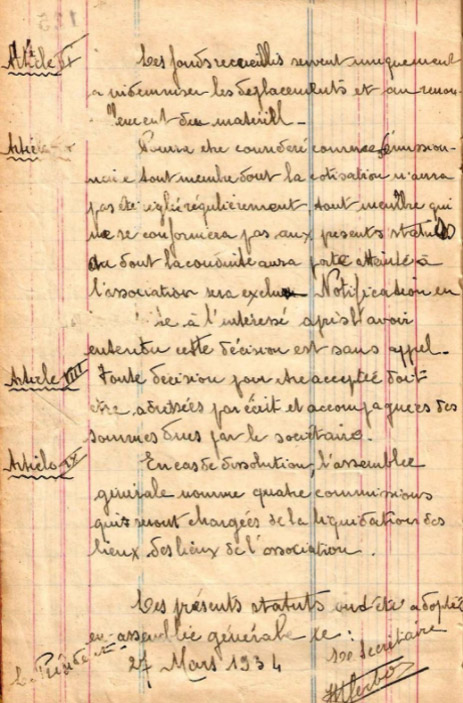 Article VI Les fonds recueillis servent uniquement
a indemniser les deplacements et au renou-
lement du matériell -
Article Pourra etre consideré comme démission-
naire tout membre dont la cotisation n'aura
pas été réglée régulièrement, tout membre qui
ne se conformera pas aux présents statuts
ou dont la conduite aura porté atteinte à
l'association sera exclu Notification en
à l'intéressé après l'avoir
entendu cette décision est sans appel.
Article VIII Toute décision pour etre acceptée doit
etre adressées par écrit et accompagnées des
sommes dues par le sociétaire.
Article IX En cas de dissolution, l'assemblee
générale nomme quatre commissions
qui seront chargées de la liquidation des
lieux des lieux de l'association.
Les présents statuts ont été adopté
en assemblée générale le :
Le Président 27 Mars 1934 Le Secritaire